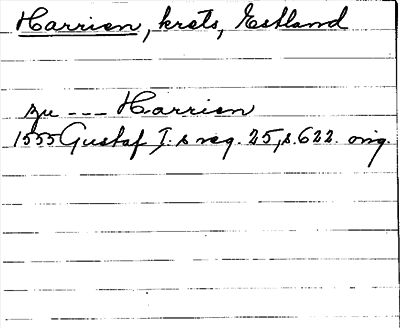 Harrien, krets, Estland
zu --- Harrien
1555 Gustaf I:s reg. 25, s. 622. orig.